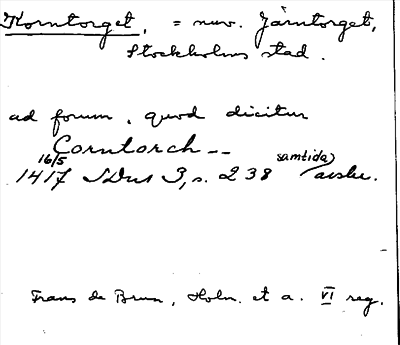 Korntorget, = nuv. Järntorget,
Stockholms stad.
ad forum, quod dicitur
Corntorch --
16/5
1417 SDns 3, s. 238 samtida avskr.
Frans de Brun, Holm. et a. VI reg.